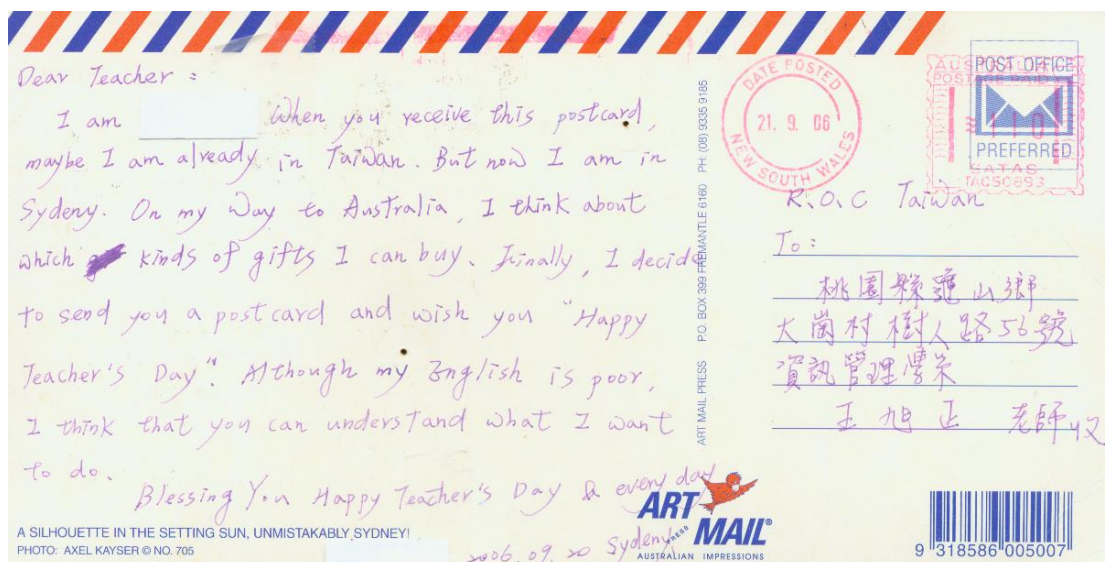 Dear Teacher :
I am When you receive this postcard,
maybe I am already in Taiwan. But now I am in
Sydeny. On my Way to Australia, I think about
which kinds of gifts I can buy. Finally, I decide
to send you a postcard and wish you "Happy
Teacher's Day". Although my English is poor,
I think that you can understand what I want
to do.
Blessing You Happy Teacher's Day & every day
2006.09.20 Sydeny
A SILHOUETTE IN THE SETTING SUN, UNMISTAKABLY SYDNEY!
PHOTO: AXEL KAYSER © NO. 705
ART MAIL PRESS P.O. BOX 399 FREMANTLE 6160 PH: (08) 9335 9185
DATE POSTED
21. 9. 06
NEW SOUTH WALES
POSTAGE PAID
POST OFFICE
PREFERRED
R.O.C Taiwan
To:
桃園縣龜山鄉
大崗村樹人路56號
資訊管理學系
王旭正 老師收
ART PRESS MAIL®
AUSTRALIAN IMPRESSIONS
9 318586 005007